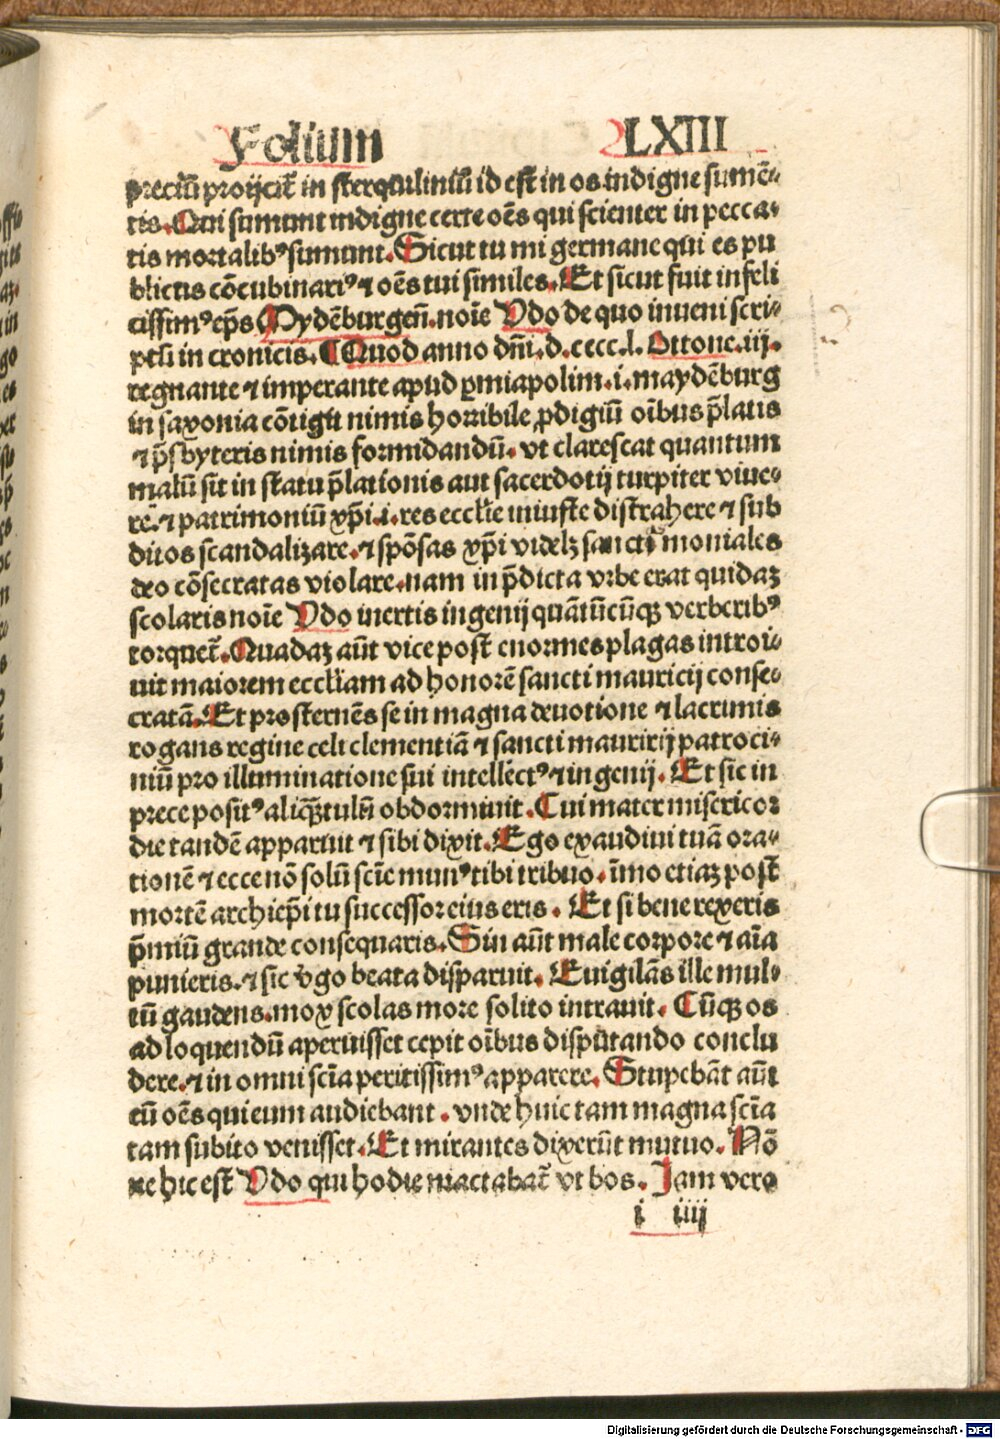 Folium LXIII
preciũ proijcit᷑ in sterquliniũ id est in os indigne sumẽ⸗
tis. Qui sumunt indigne certe oẽs qui scienter in pecca⸗
tis mortalibꝰ sumunt. Sicut tu mi germane qui es pu
blicus cõcubinariꝰ ⁊ oẽs tui similes. Et sicut fuit infeli
cissimꝰ ep̃s Mydẽburgeñ. noĩe Udo de quo inueni scri⸗
ptũ in cronicis. ¶ Quod anno dñi. d. cccc. l. Ottone. iij.
regnante ⁊ imperante apud ꝑmiapolim. i. maydẽburg
in saxonia cõtigit nimis horribile ꝓdigiũ oĩbus p̃latis
⁊ p̃sbyteris nimis formidandũ. vt clarescat quantum
malũ sit in statu p̃lationis aut sacerdotij turpiter viue⸗
re. ⁊ patrimoniũ xp̃i. i. res eccl̃ie iniuste distrahere ⁊ sub
ditos scandalizare. ⁊ spõsas xp̃i videlꝫ sanctimoniales
deo cõsecratas violare. nam in p̃dicta vrbe erat quidaꝫ
scolaris noĩe Udo inertis ingenij quãtũcũqꝫ verberibꝰ
torquet᷑. Quadaꝫ aũt vice post enormes plagas introi⸗
uit maiorem eccl̃iam ad honorẽ sancti mauricij conse⸗
cratã. Et prosternẽs se in magna deuotione ⁊ lacrimis
rogans regine celi clementiã ⁊ sancti mauririj patroci⸗
niũ pro illuminatione sui intellectꝰ ⁊ ingenij. Et sic in
prece positꝰ aliqꝫtulũ obdormiuit. Cui mater misericor
die tandẽ apparuit ⁊ sibi dixit. Ego exaudiui tuã ora⸗
tionẽ ⁊ ecce nõ solũ scĩe munꝰ tibi tribuo. ĩmo etiaꝫ post
mortẽ archiep̃i tu successor eius eris. Et si bene rexeris
p̃miũ grande consequaris. Sin aũt male corpore ⁊ aĩa
punieris. ⁊ sic v̾go beata disparuit. Euigilãs ille mul⸗
tũ gaudens. mox scolas more solito intrauit. Cũqꝫ os
ad loquendũ aperuisset cepit oĩbus disputando conclu
dere. ⁊ in omni scĩa peritissimꝰ apparere. Stupebãt aũt
eũ oẽs qui eum audiebant. vnde huic tam magna scĩa
tam subito venisset. Et mirantes dixerũt mutuo. Nõ
ne hic est Udo qui hodie mactabat᷑ vt bos. Jam vero
i iiij
Digitalisierung gefördert durch die Deutsche Forschungsgemeinschaft - DFG